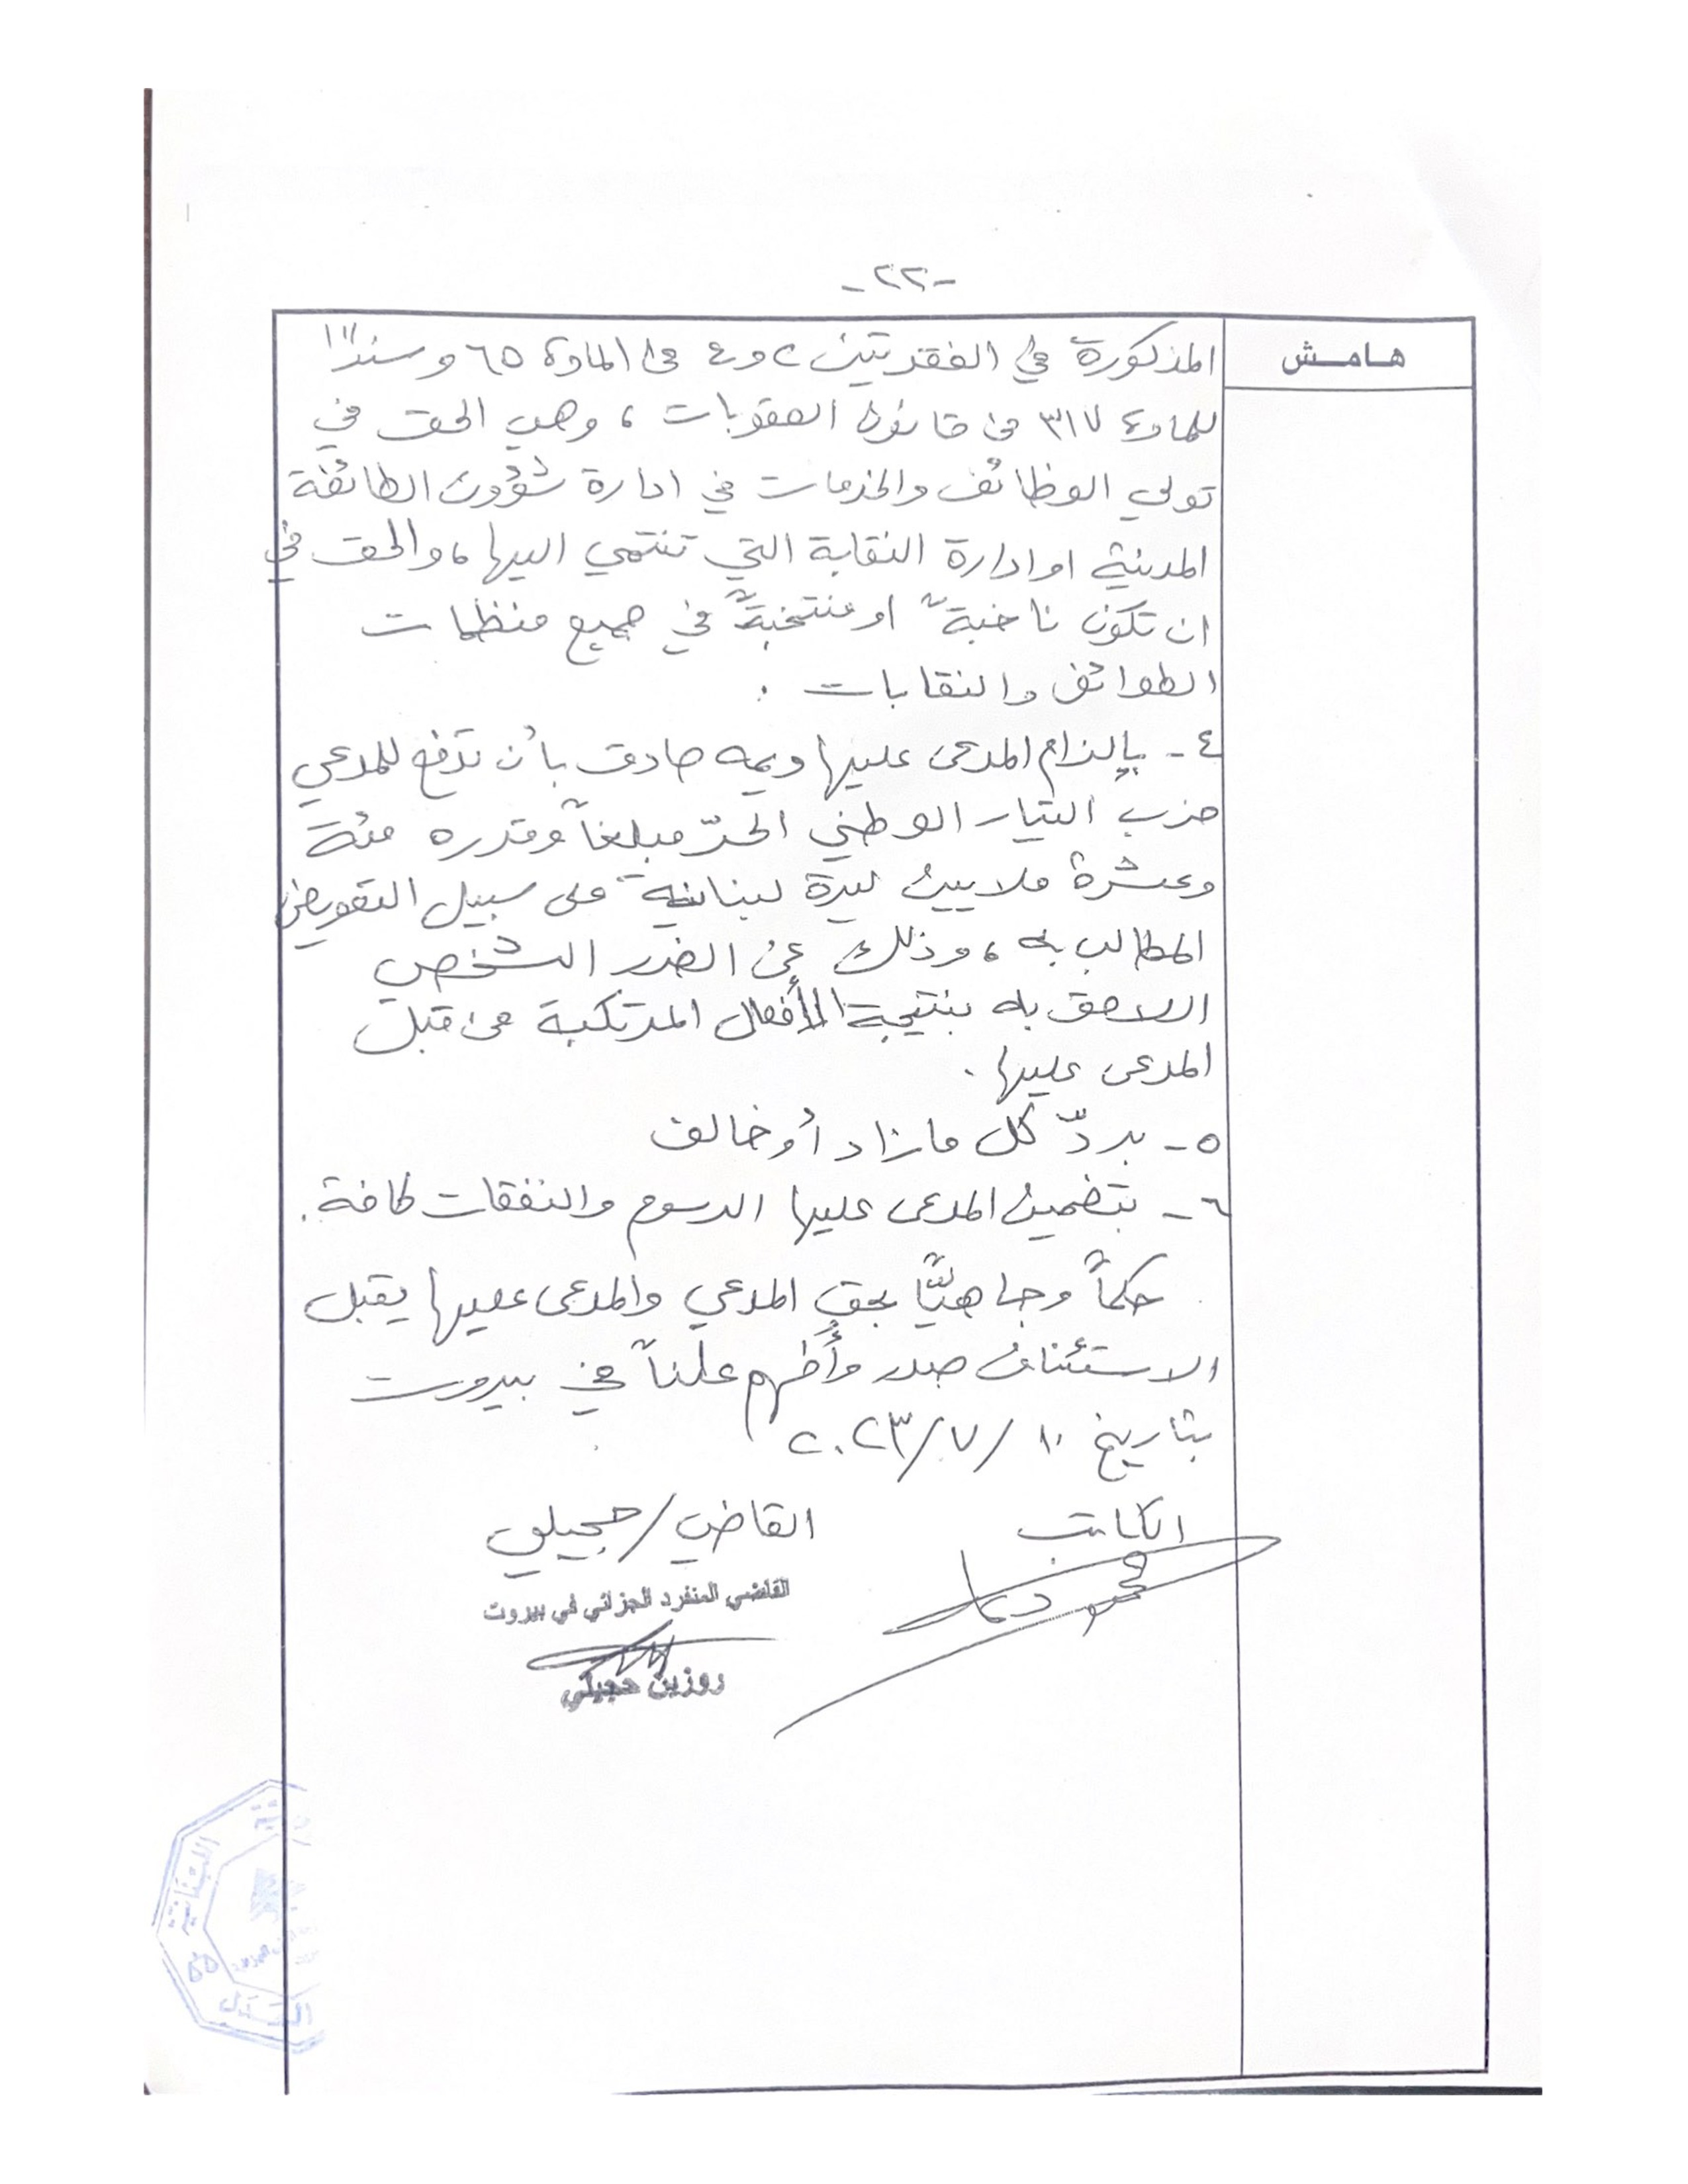 -٢٢-
هامش
المذكورة في الفقرتين ٢ و٤ من المادة ٦٥ وسنداً
للمادة ٣١٧ من قانون العقوبات، وهي الحق في
تولي الوظائف والخدمات في ادارة شؤون الطائفة
المدنية او ادارة النقابة التي تنتمي اليها، والحق في
ان تكون ناخبةً او منتخبةً في جميع منظمات
الطوائف والنقابات.
٤- بإلزام المدعى عليها ديمه صادق بأن تدفع للمدعي
حزب التيار الوطني الحرّ مبلغاً وقدره مئة
وعشرة ملايين ليرة لبنانية على سبيل التعويض
المطالب به، وذلك عن الضرر الشخصي
اللاحق به بنتيجة الأفعال المرتكبة من قبل
المدعى عليها.
٥- بردّ كل ما زاد أو خالف
٦- بتضمين المدعى عليها الرسوم والنفقات كافة.
حكماً وجاهيّاً بحق المدعي والمدعى عليها يقبل
الاستئناف صدر وأُفهم علناً في بيروت
بتاريخ ١٠/٧/٢٠٢٣
الكاتب القاضي/حجيلي
القاضي المنفرد الجزائي في بيروت
روزين حجيلي
اللبنانية
العدل